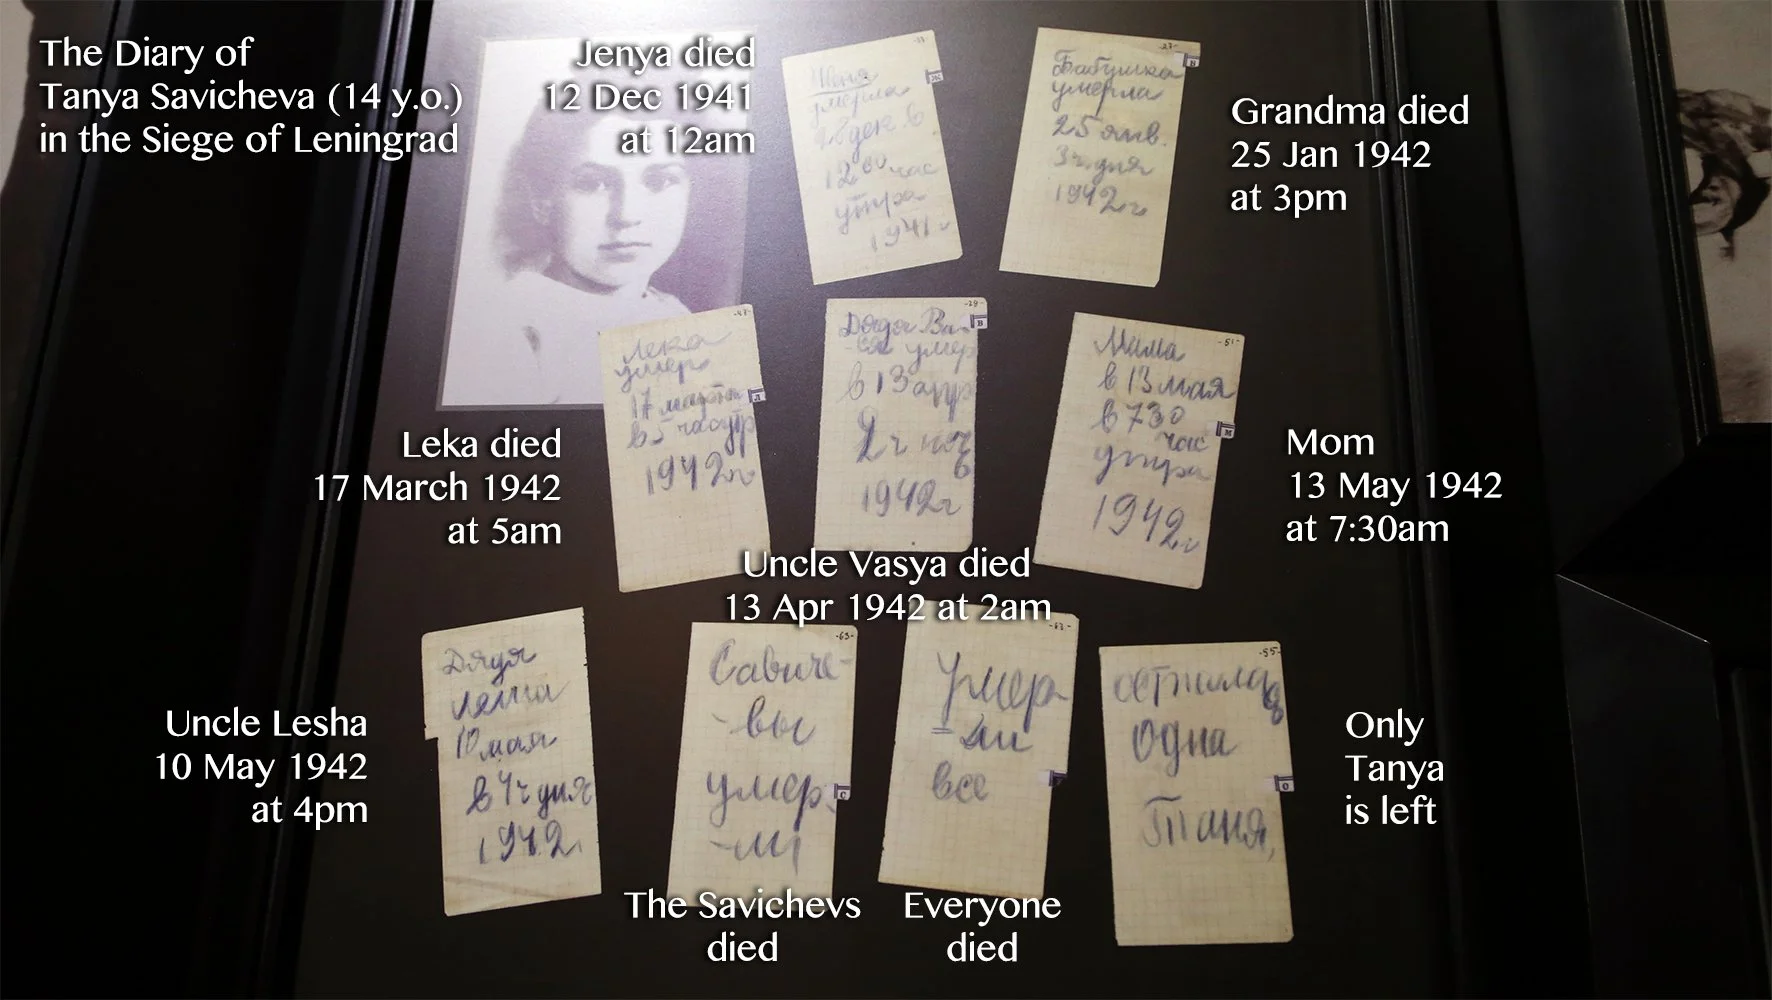 The Diary of
Tanya Savicheva (14 y.o.)
in the Siege of Leningrad
Jenya died
12 Dec 1941
at 12am
-11-
Ж
Женя
умерла
28 дек в
12 00 час
утра
1941 г
-27-
Б
Бабушка
умерла
25 янв.
3 ч. дня
1942 г
Grandma died
25 Jan 1942
at 3pm
Л
Лека
умер
17 марта
в 5 час утр
1942 г
Leka died
17 March 1942
at 5am
-29-
В
Дядя Ва-
ся умер
в 13 апр
2 ч ноч
1942 г
Uncle Vasya died
13 Apr 1942 at 2am
-51-
М
Мама
в 13 мая
в 7 30
час
утра
1942 г
Mom
13 May 1942
at 7:30am
Дядя
Леша
10 мая
в 4 ч дня
1942
Uncle Lesha
10 May 1942
at 4pm
-63-
С
Савиче-
-вы
умер-
-ли
The Savichevs
died
Умер
=ли
все
Everyone
died
-55-
О
осталась
одна
Таня,
Only
Tanya
is left